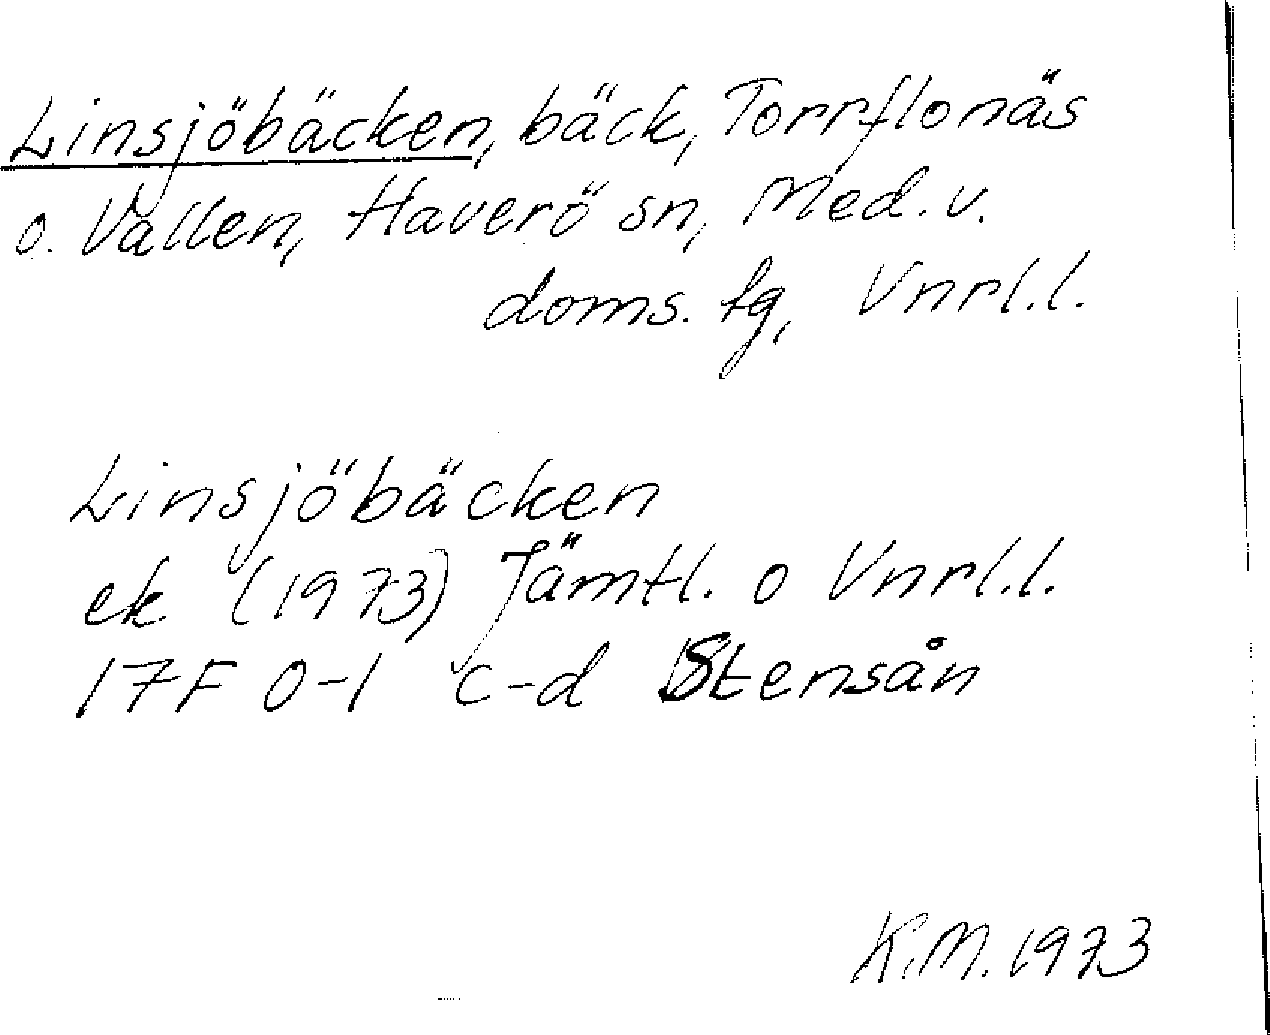 Linsjöbäcken, bäck, Torrflonäs
o. Vallen, Haverö sn, Med. v.
doms. tg, Vnrl.l.
Linsjöbäcken
ek (1973) Jämtl. o Vnrl.l.
17F 0-1 c-d Stensån
K.M. 1973